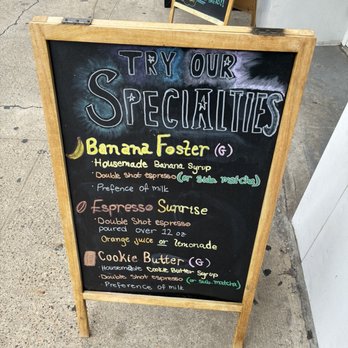 TRY OUR
SPECIALTIES
Banana Foster (G)
· Housemade Banana Syrup
· Double Shot espresso (or sub. matcha)
· Prefence of milk
Espresso Sunrise
· Double Shot espresso
poured over 12 oz
Orange juice or lemonade
Cookie Butter (G)
· Housemade Cookie Butter Syrup
· Double Shot espresso (or sub. matcha)
· Preference of milk